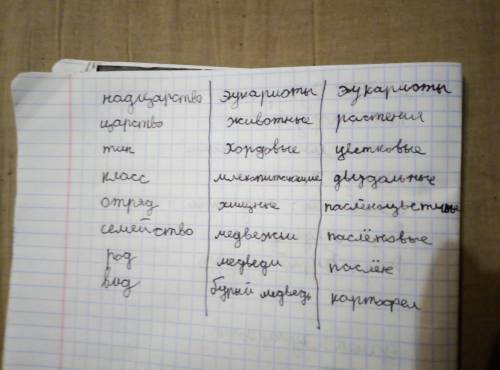 надцарство эукариоты эукариоты
царство животные растения
тип хордовые цветковые
класс млекопитающие двудольные
отряд хищные паслёноцветные
семейство медвежьи паслёновые
род медведи паслён
вид бурый медведь картофел